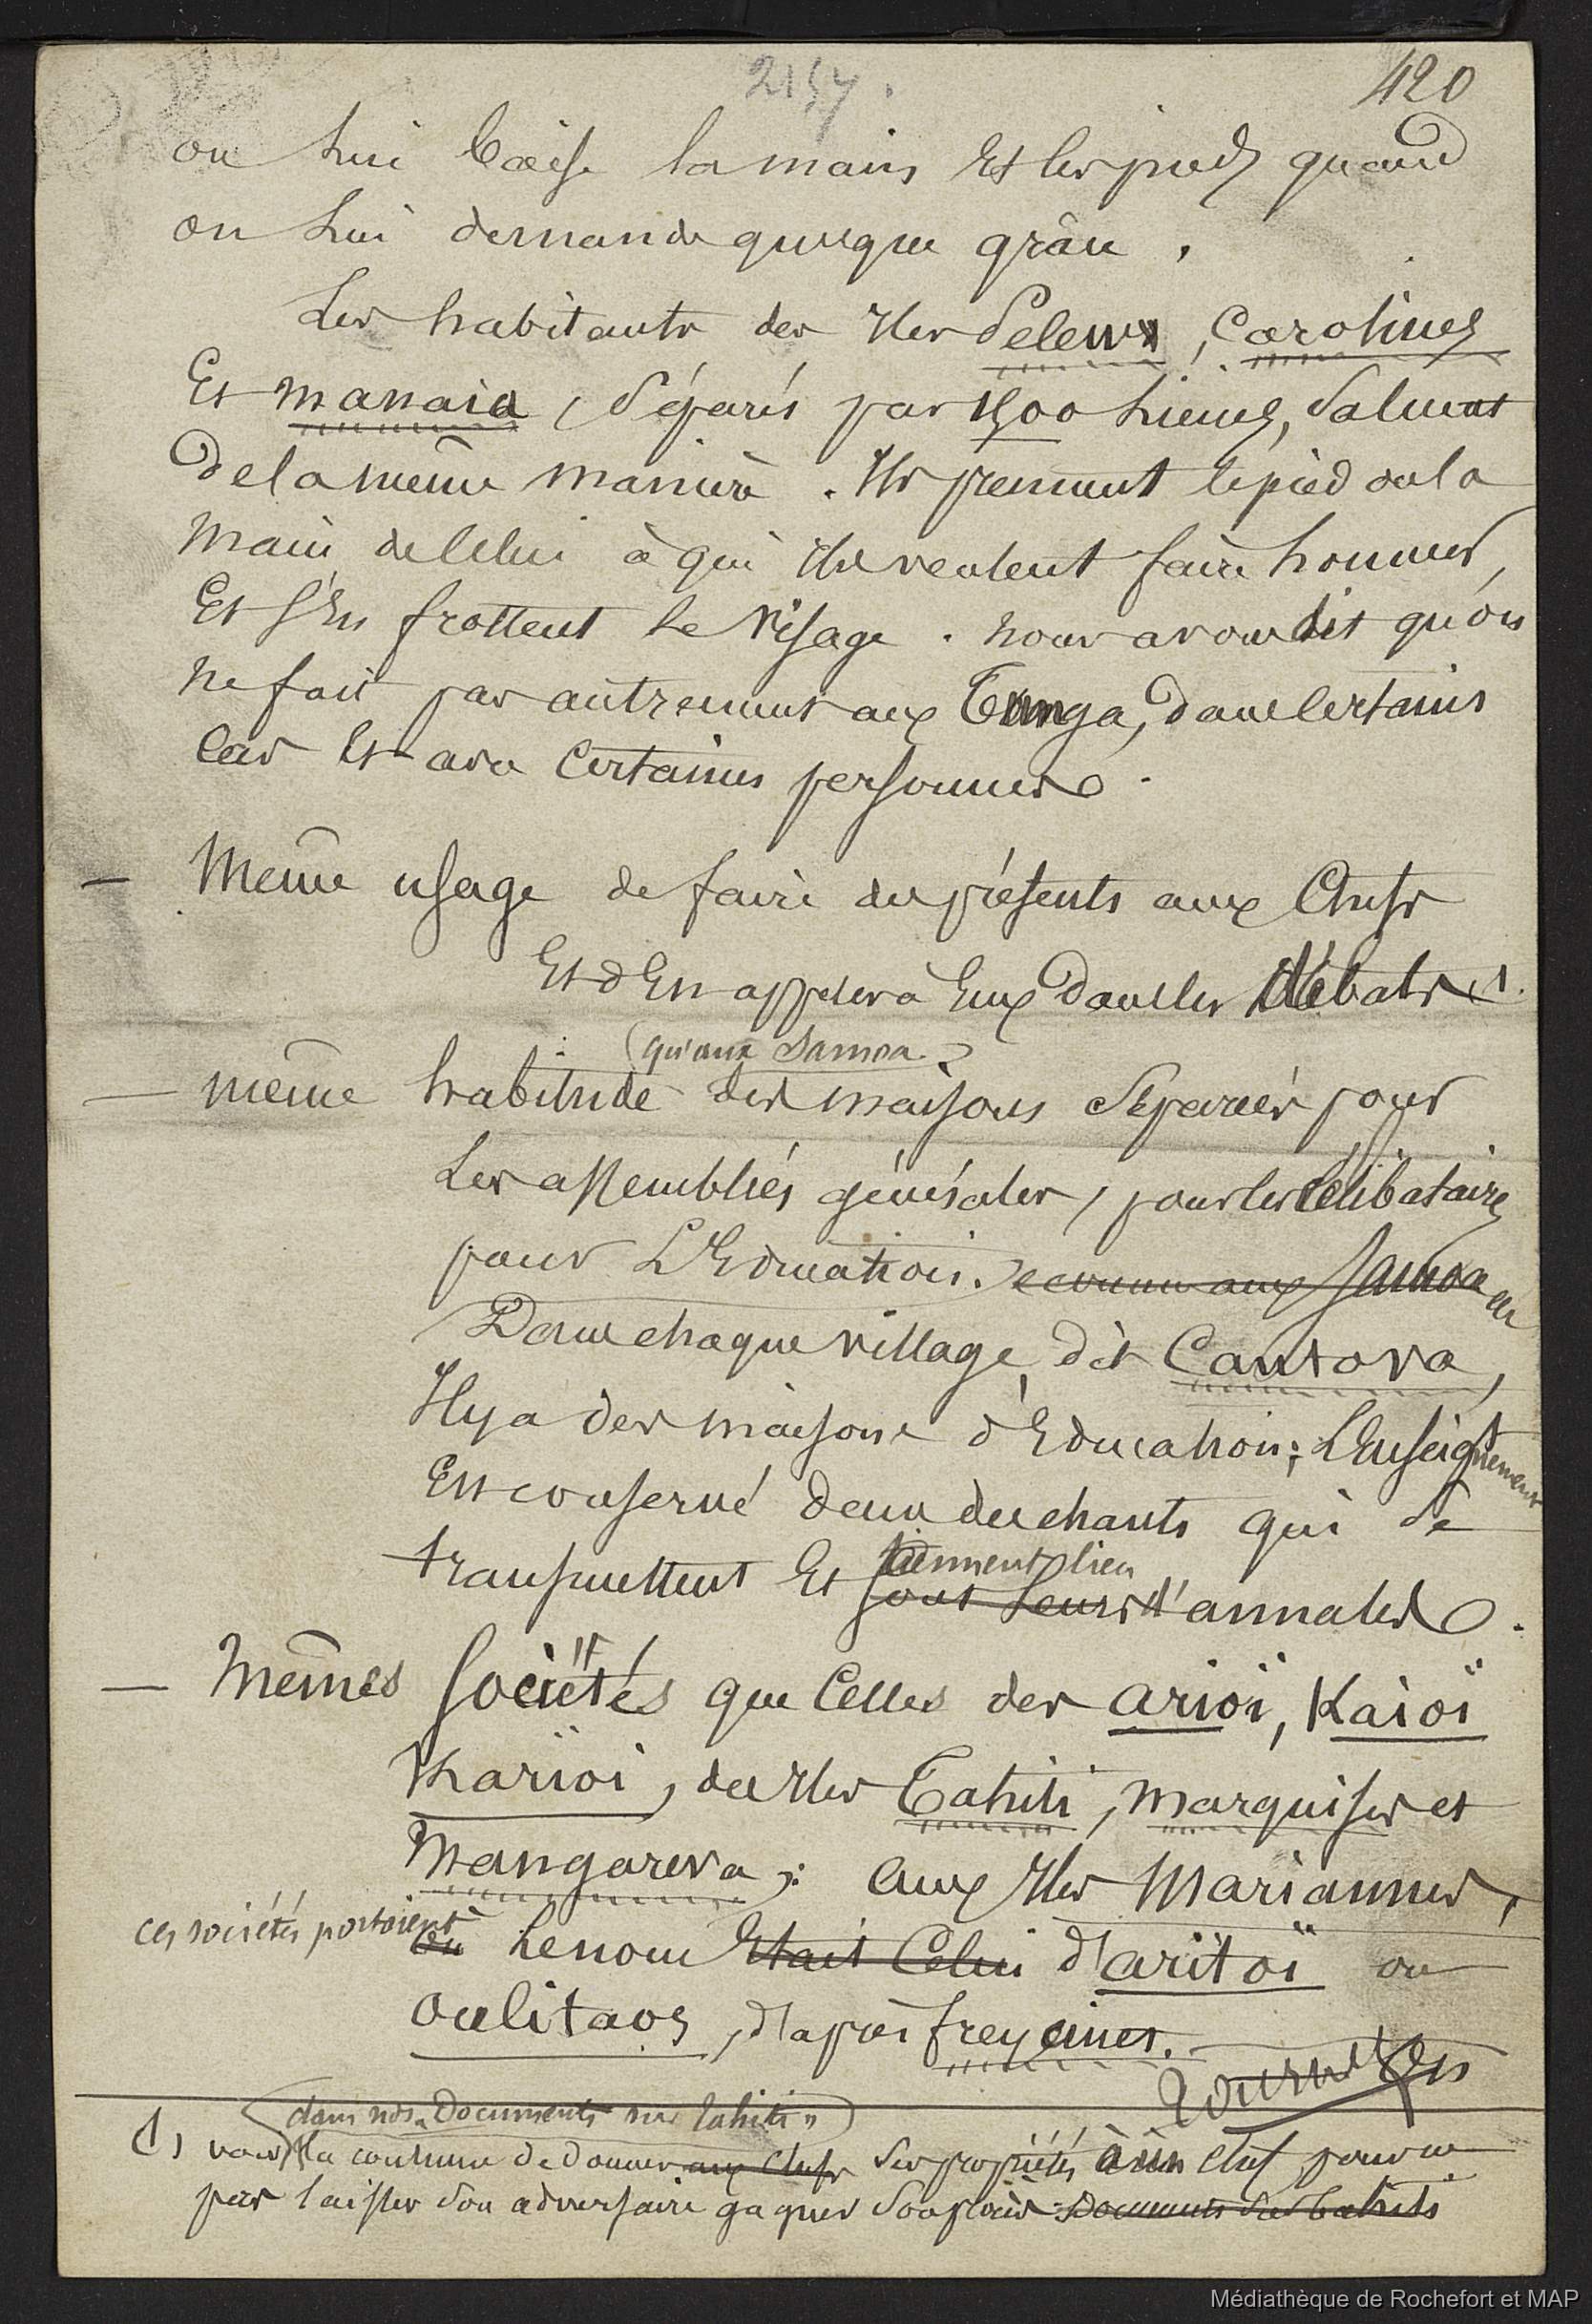 2157.
420
on lui baise la main Et les pieds quand
on lui demande quelque grâce.
Les habitants des Iles Pelew, Carolines
Et mariana, séparés par 1500 lieues, saluent
de la même manière. Ils prennent le pied ou la
main de Celui à qui Ils veulent faire honneur,
Et s'En frottent le Visage. nous avons dit qu'on
ne fait pas autrement aux Tonga, dans Certains
Cas Et avec Certaines personnes.
— Même usage de faire des présents aux Chefs
Et d'En appeler à Eux dans les débats (1.
(qu'aux Samoa.)
— même habitude des maisons séparées pour
Les assemblées générales, pour les Célibataires
pour L'Education. comme aux Samoa
Dans chaque village, dit Cantova,
Il y a des maisons d'Education; L'Enseignement
Est conservé dans des chants qui se
tiennent lieu
transmettent Et sont leurs d'annales.
— Mêmes sociétés que Celles des arioï, Kaioï
Karioi, des Iles Tahiti, marquises et
Mangareva; aux Iles Mariannes,
ces sociétés portaient
où Le nom Etait Celui d'aritoï ou
oulitaos, d'après freycinet.
Tournez
(dans nos "Documents sur Tahiti")
(1) voir la coutume de donner aux Chefs ses propriétés à un chef pour ne
pas laisser son adversaire gagner son procès. Documents sur Tahiti
Médiathèque de Rochefort et MAP